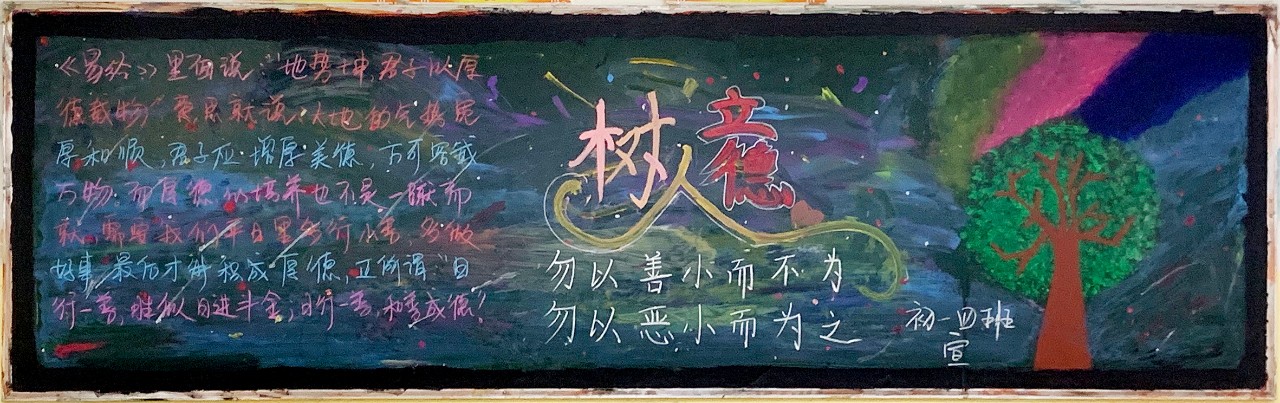 《易经》里面说“地势坤,君子以厚
德载物”意思就说,大地的气势宽
厚和顺,君子应增厚美德,方可容载
万物.而厚德的培养也不是一蹴而
就.需要我们平日里多行小善,多做
好事,最后才拼积成厚德,正所谓“日
行一善,胜似日进斗金;日行一善,积善成德!
立德
树人
勿以善小而不为
勿以恶小而为之
初一四班
宣